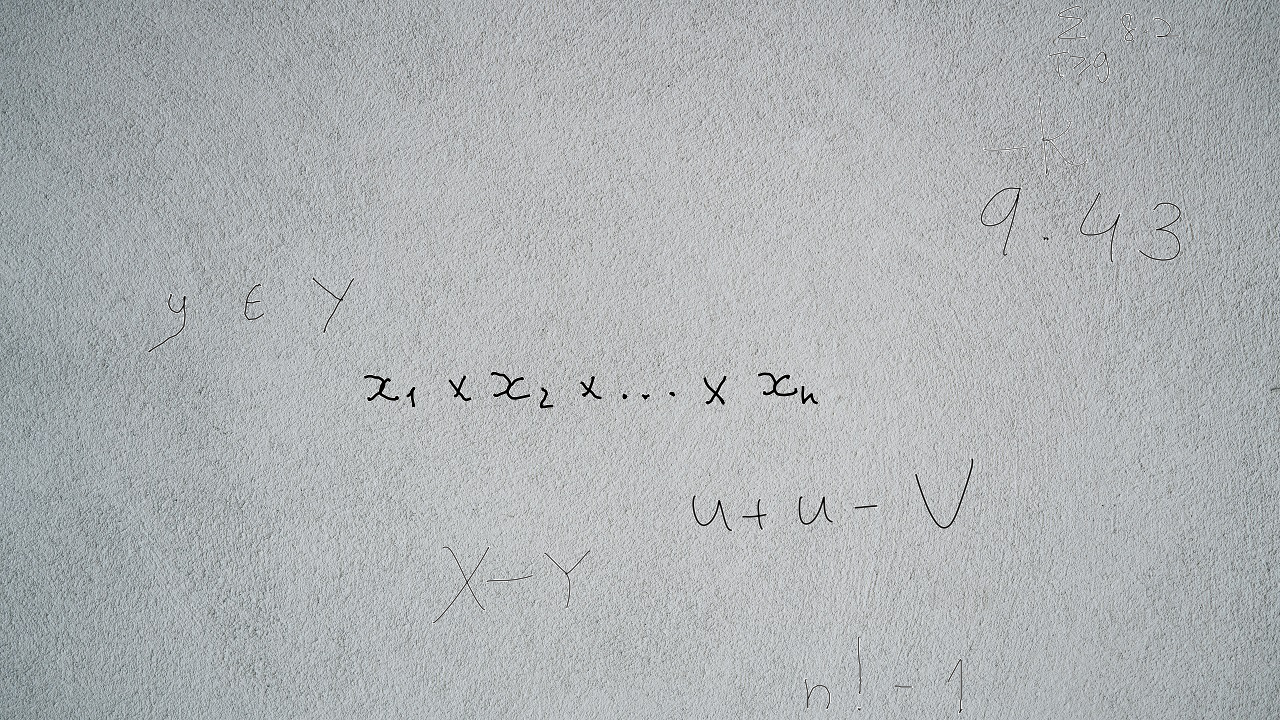 -k
9.43
y ∈ Y
x₁ × x₂ × ... × xₙ
u + u - V
X - Y
n! - 1